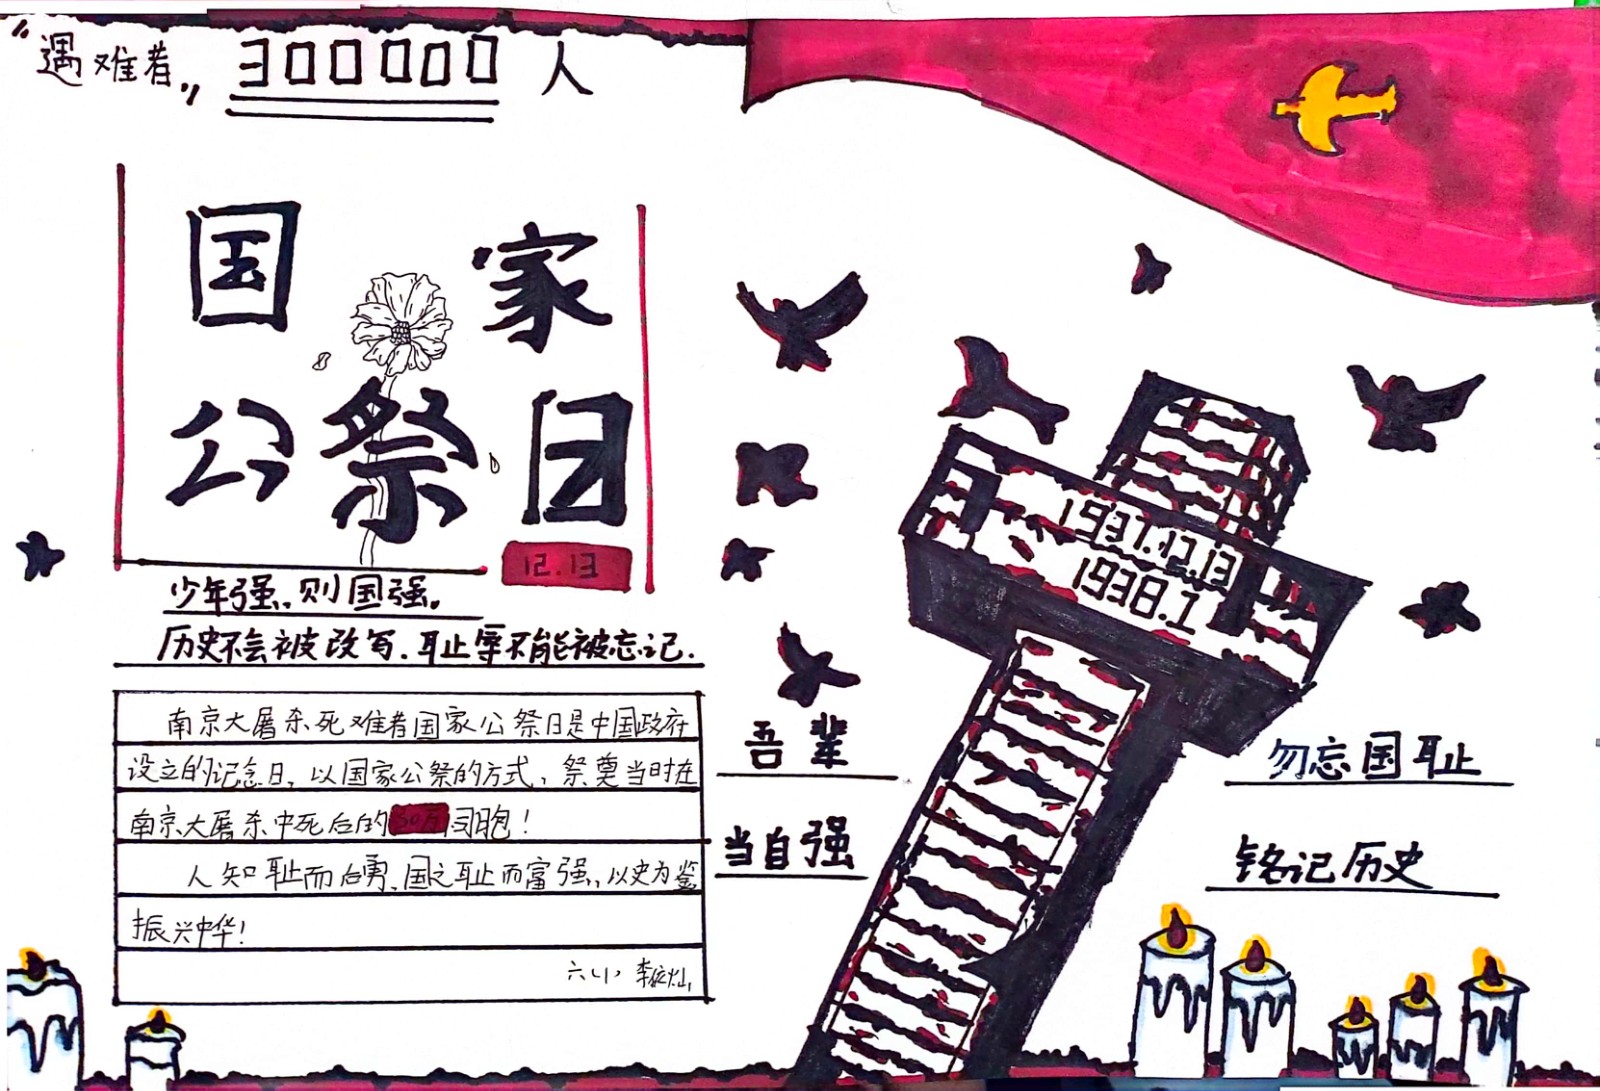 "遇难者" 300000 人
国家
公祭日
12.13
少年强，则国强。
历史不会被改写，耻辱不能被忘记.
南京大屠杀死难者国家公祭日是中国政府
设立的记念日，以国家公祭的方式，祭奠当时在
南京大屠杀中死后的30万同胞！
人知耻而后勇，国之耻而富强，以史为鉴
振兴中华！
六(1) 李
1937.12.13
1938.1
吾辈
当自强
勿忘国耻
铭记历史